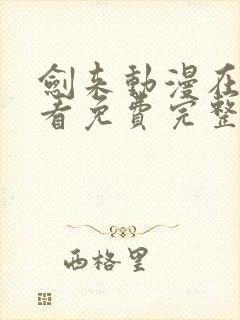 劍来動漫在
看免費完整
西格里